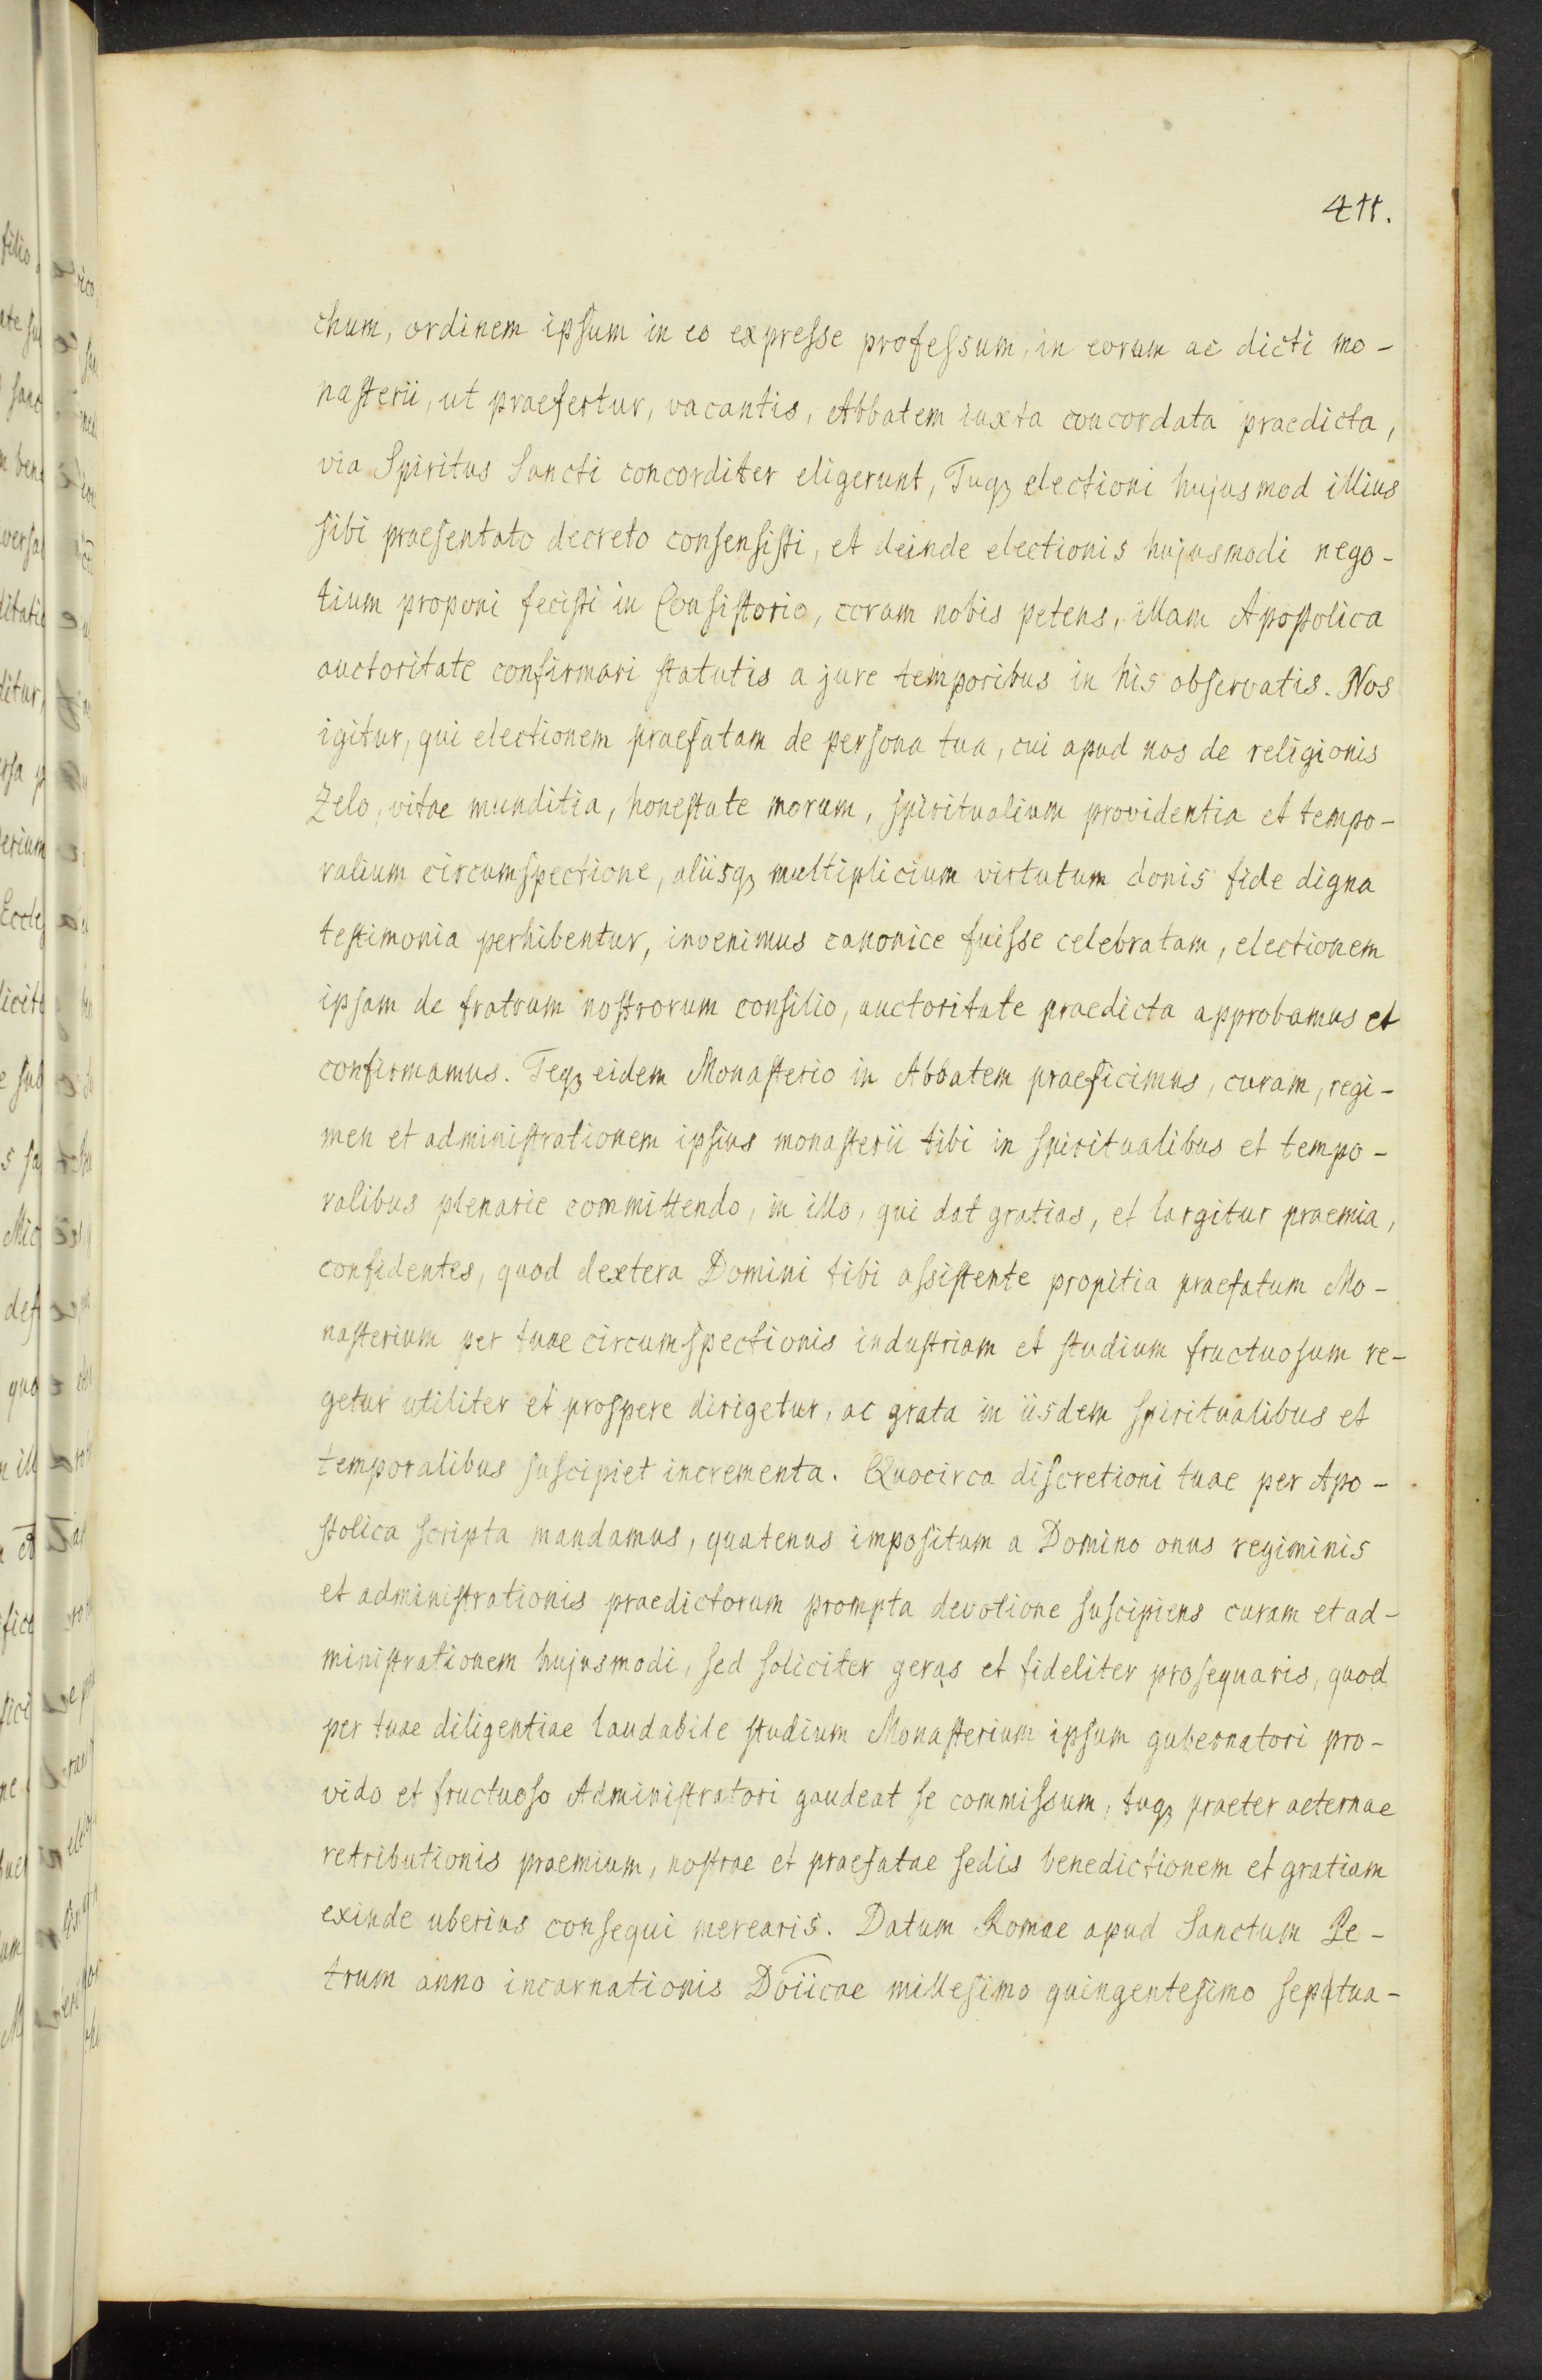 411.
chum, ordinem ipsum in eo expresse professum, in eorum ac dicti mo-
nasterii, ut praefertur, vacantis, Abbatem iuxta concordata praedicta,
via Spiritus Sancti concorditer eligerunt, Tuqꝫ electioni hujusmod illius
sibi praesentato decreto consensisti, et deinde electionis hujusmodi nego-
tium proponi fecisti in Consistorio, coram nobis petens, illam Apostolica
auctoritate confirmari statutis a jure temporibus in his observatis. Nos
igitur, qui electionem praefatam de persona tua, cui apud nos de religionis
Zelo, vitae munditia, honestate morum, spiritualium providentia et tempo-
ralium circumspectione, aliisqꝫ multiplicium virtutum donis fide digna
testimonia perhibentur, invenimus canonice fuisse celebratam, electionem
ipsam de fratrum nostrorum consilio, auctoritate praedicta approbamus et
confirmamus. Teqꝫ eidem Monasterio in Abbatem praeficimus, curam, regi-
men et administrationem ipsius monasterii tibi in spiritualibus et tempo-
ralibus plenarie committendo, in illo, qui dat gratias, et largitur praemia,
confidentes, quod dextera Domini tibi assistente propitia praefatum Mo-
nasterium per tuae circumspectionis industriam et studium fructuosum re-
getur utiliter et prospere dirigetur, ac grata in iisdem spiritualibus et
temporalibus suscipiet incrementa. Quocirca discretioni tuae per Apo-
stolica scripta mandamus, quatenus impositum a Domino onus regiminis
et administrationis praedictorum prompta devotione suscipiens curam et ad-
ministrationem hujusmodi, sed soliciter geras et fideliter prosequaris, quod
per tuae diligentiae laudabile studium Monasterium ipsum gubernatori pro-
vido et fructuoso Administratori gaudeat se commissum, tuqꝫ praeter aeternae
retributionis praemium, nostrae et praefatae sedis benedictionem et gratiam
exinde uberius consequi merearis. Datum Romae apud Sanctum Pe-
trum anno incarnationis Doīicae millesimo quingentesimo septua-